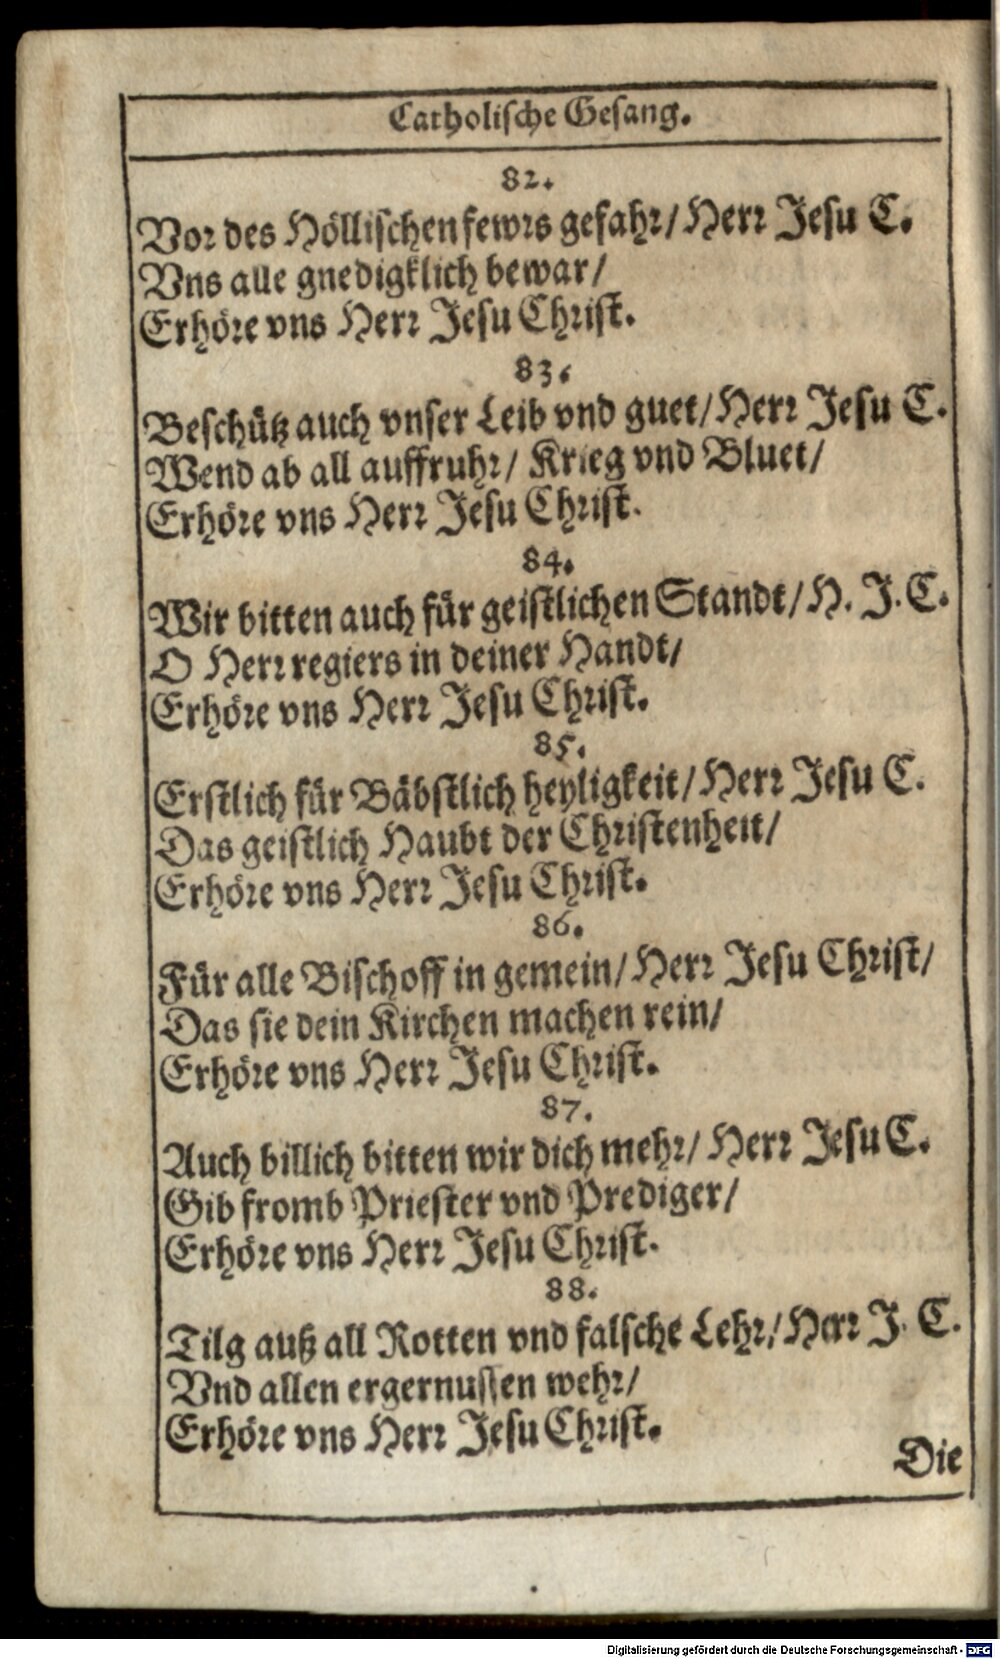 Catholische Gesang.
82.
Vor des Höllischen fewrs gefahr/ Herr Jesu C.
Vns alle gnedigklich bewar/
Erhöre vns Herr Jesu Christ.
83.
Beschütz auch vnser Leib vnd guet/ Herr Jesu C.
Wend ab all auffruhr/ Krieg vnd Bluet/
Erhöre vns Herr Jesu Christ.
84.
Wir bitten auch für geistlichen Standt/ H. J. C.
O Herr regiers in deiner Handt/
Erhöre vns Herr Jesu Christ.
85.
Erstlich für Bäbstlich heyligkeit/ Herr Jesu C.
Das geistlich Haubt der Christenheit/
Erhöre vns Herr Jesu Christ.
86.
Für alle Bischoff in gemein/ Herr Jesu Christ/
Das sie dein Kirchen machen rein/
Erhöre vns Herr Jesu Christ.
87.
Auch billich bitten wir dich mehr/ Herr Jesu C.
Gib fromb Priester vnd Prediger/
Erhöre vns Herr Jesu Christ.
88.
Tilg auß all Rotten vnd falsche Lehr/ Herr J. C.
Vnd allen ergernussen wehr/
Erhöre vns Herr Jesu Christ.
Die
Digitalisierung gefördert durch die Deutsche Forschungsgemeinschaft - DFG